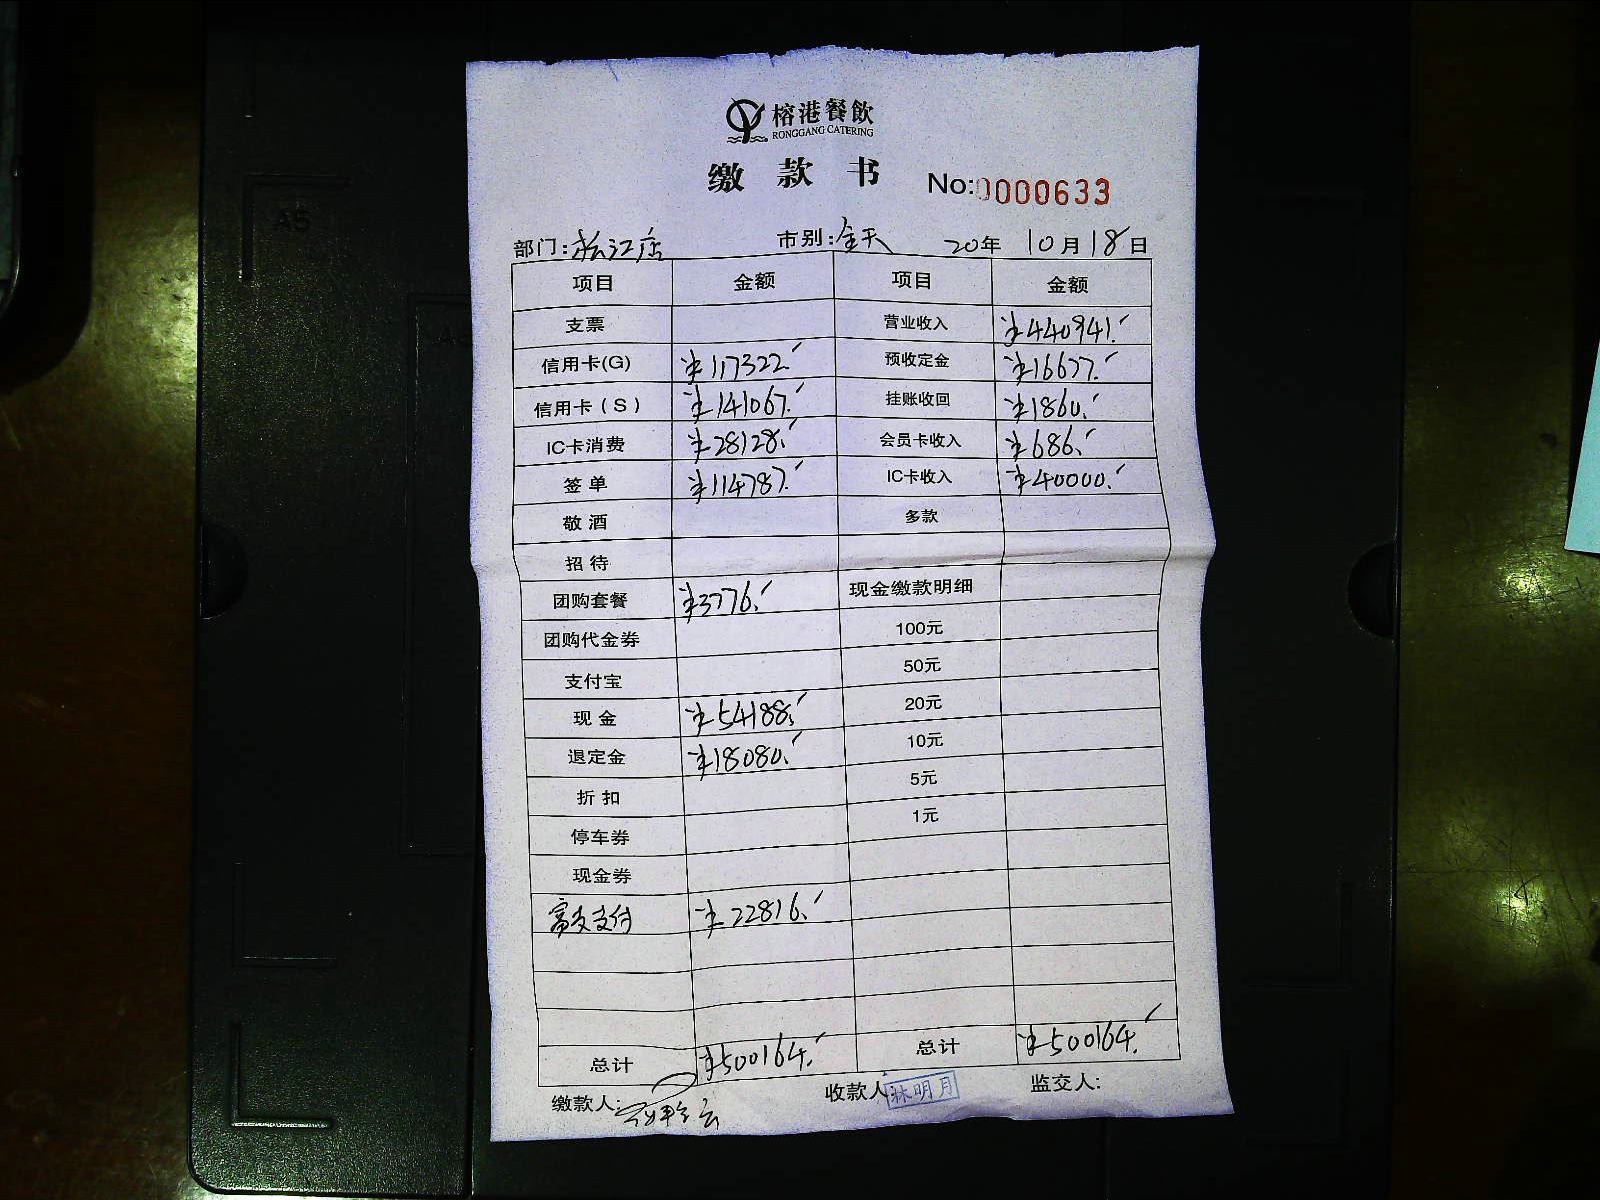 榕港餐飲
RONGGANG CATERING
缴 款 书
No:0000633
部门:松江店 市别:全天 20年 10月18日
项目 金额 项目 金额
支票 营业收入 ¥440941.
信用卡(G) ¥117322. 预收定金 ¥16677.
信用卡(S) ¥141067. 挂账收回 ¥1860.
IC卡消费 ¥28128. 会员卡收入 ¥686.
签单 ¥114787. IC卡收入 ¥40000.
敬酒 多款
招待
团购套餐 ¥3776. 现金缴款明细
团购代金券 100元
支付宝 50元
现金 ¥54188. 20元
退定金 ¥18080. 10元
折扣 5元
停车券 1元
现金券
支付 ¥22816.
总计 ¥500164. 总计 ¥500164.
缴款人: 收款人: 林明月 监交人:
A5